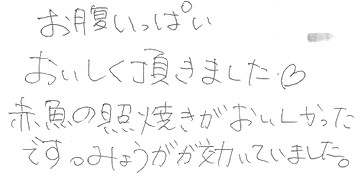 お腹いっぱい
おいしく頂きました♡
赤魚の照焼きがおいしかった
ですっみょうがが効いていました。